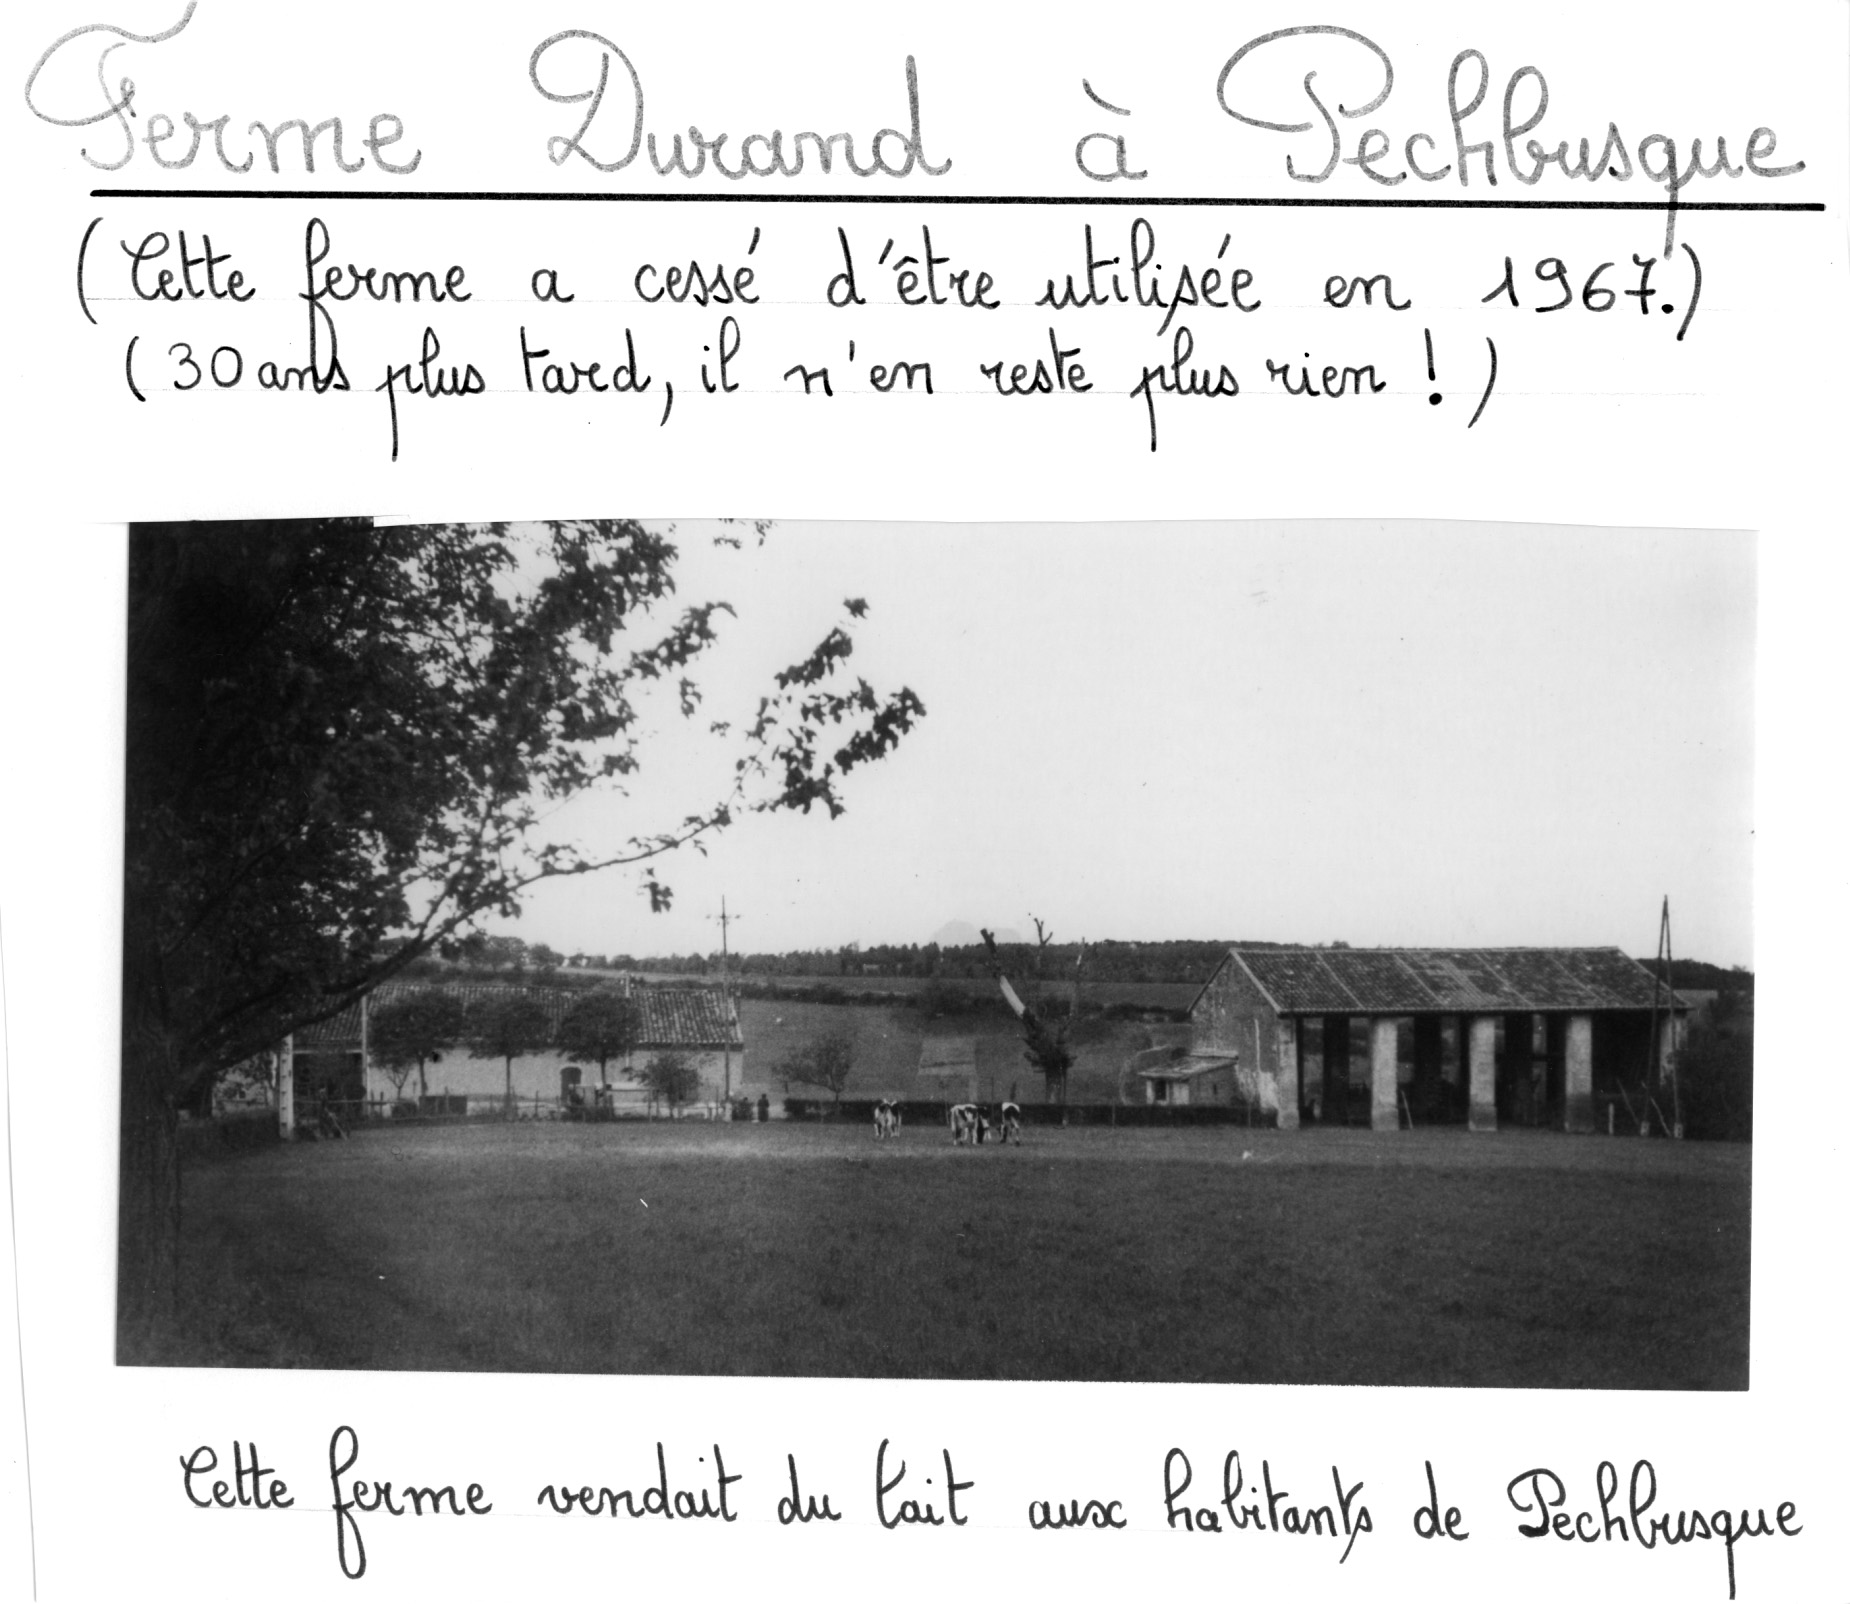 Ferme Durand à Pechbusque
(Cette ferme a cessé d'être utilisée en 1967.)
(30 ans plus tard, il n'en reste plus rien !)
Cette ferme vendait du lait aux habitants de Pechbusque